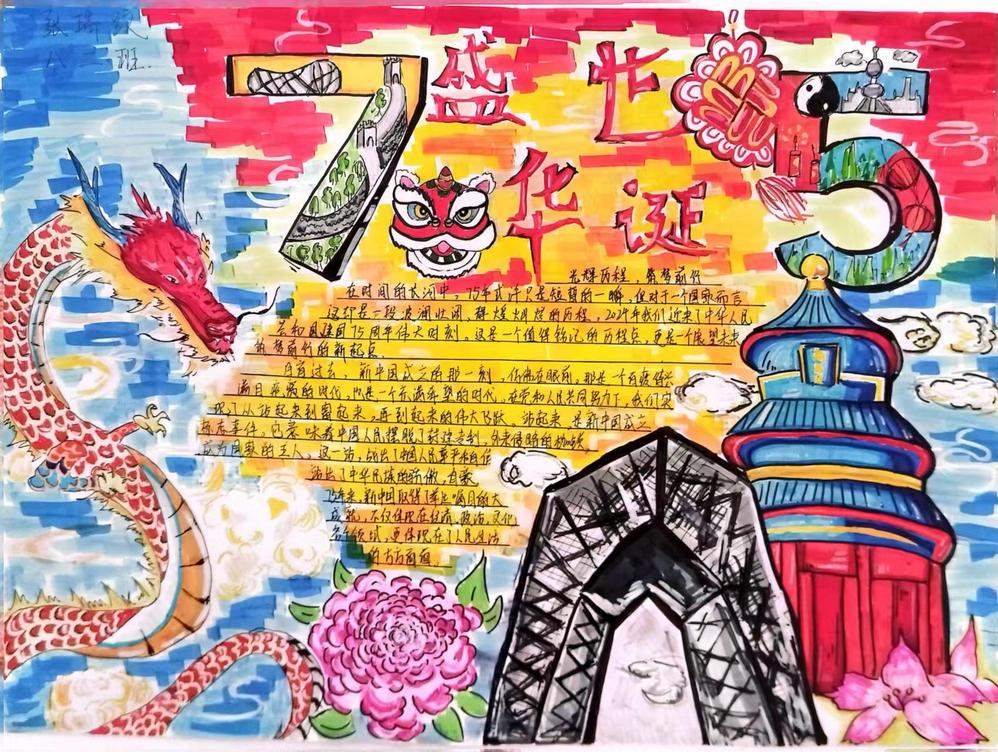 张瑞
八 班.
75
盛世
华诞
光辉历程，筑梦前行
在时间的长河中，75年或许只是短暂的一瞬，但对于一个国家而言
这却是一段波澜壮阔、辉煌灿烂的历程。2024年我们迎来了中华人民
共和国建国75周年伟大时刻。这是一个值得铭记的历程点，更是一个展望未来
筑梦前行的新起点
首过去，新中国成立的那一刻，仿佛在眼前，那是一个百废待兴
满目疮痍的时代，也是一个充满希望的时代，在党和人民共同努力下，我们实
现了从站起来到富起来，再到起来的伟大飞跃。站起来，是新中国成立
标志事件，味着中国人民摆脱了封建、外来侵略的枷锁
成为国家的主人。这一站，站出了中国人民尊严和自信
站出了中华民族的骄傲，自豪
75年来，新中国取得了举世瞩目的大
成就，不仅体现在经济，政治，文化
各个领域，更体现在了人民生活
的方方面面。